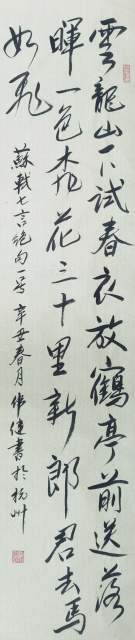 雲龍山下試春衣放鶴亭前送落
暉一色杏花三十里新郎君去馬
如飛
蘇軾七言絕句一首 辛丑春月 偉健書於杭州